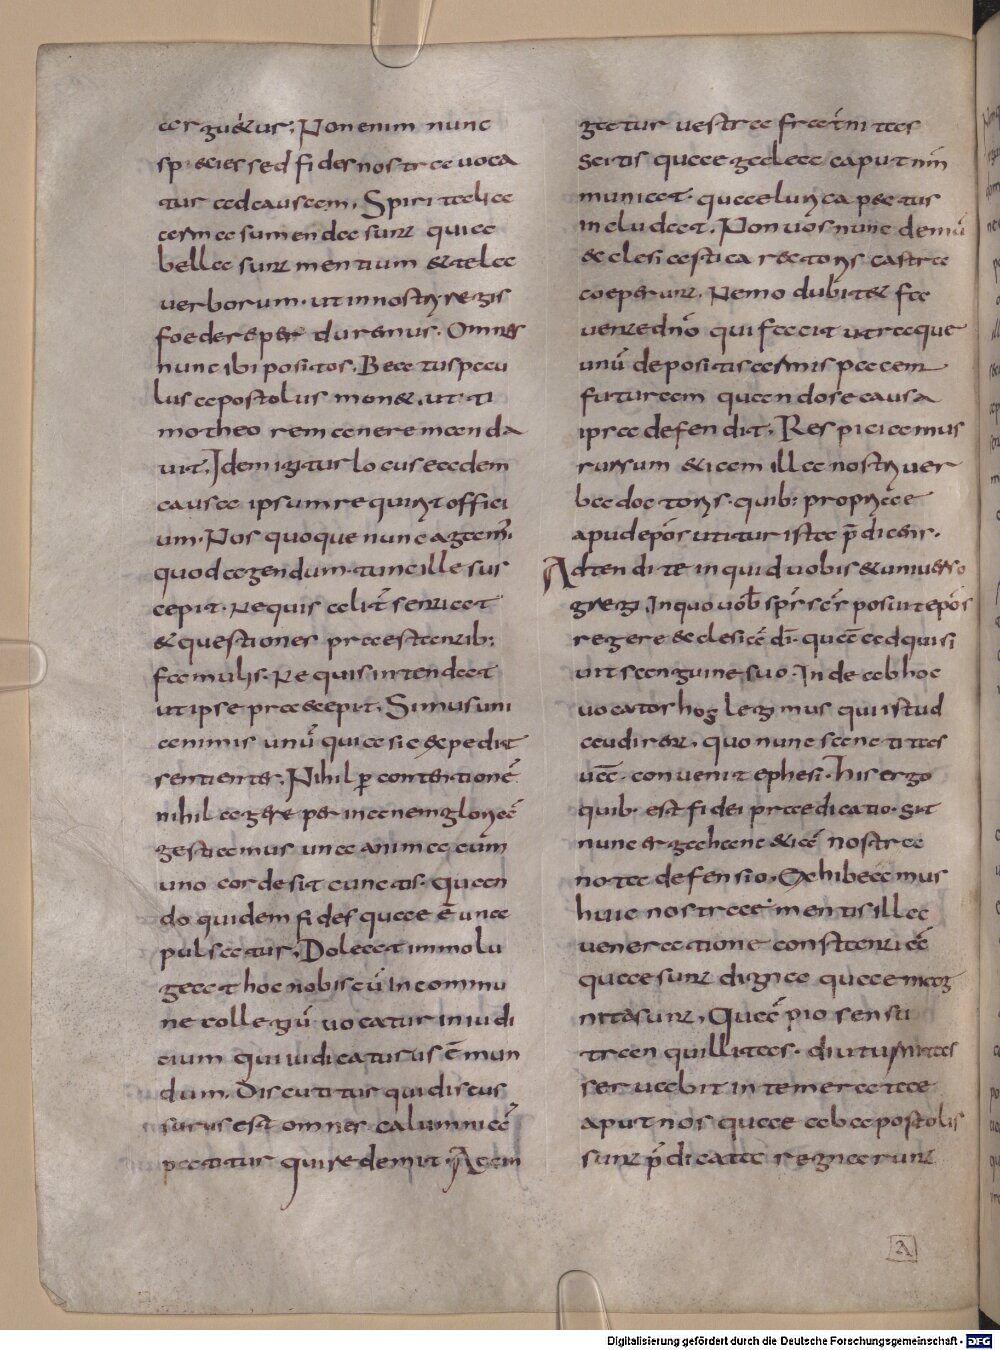 arguetur; Non enim nunc
species sed fides nostra uoca
tur ad causam. Spiritalia
arma sumenda sunt quia
bella sunt mentium & tela
uerborum. ut in nostri regis
foedere per duremus. Omnes
nunc ibi positos. Beatus pau
lus apostolus mon&. ut ti
motheo remanere manda
uit. Idem igitur locus eadem
causa ipsum requirit offici
um. Nos quoque nunc agam̄.
quod agendum. tunc ille sus
cepit. Nequis alit̄ sentiat
& questiones praestantib:
famulis. Ne quis intendat
ut ipse praecepit. Simus uni
animis unū quia sic expedit
sentientes. Nihil ꝑ contentionē
nihil agere per inanem gloriā
gestiamus una anima cum
uno corde sit cunctis. Quan
do quidem fides quae ē una
pulsatur. Doleat immo lu
geat hoc nobiscū in commu
ne collegiū uocatur in iudi
cium qui iudicaturus ē mun
dum. Discutitur qui discus
surus est omnes calumniā
patitur qui redemit. Acem
gatur uestra frat̄nitas
Scitis quae gelaea caput nīn
municat. quae lunca pectus
includat. Non uos nunc demū
ecclesiastica rectoris castra
coeperunt. Nemo dubitet fac
uente dn̄o qui facit utraque
unū depositis armis pacem
futuram quando se causa
ipsa defendit. Respiciamus
rursum &iam illa nostri uer
ba doctoris. quib: propriae
apud ep̄os utitur ista p̄dicens.
Adtendite inquid uobis & uniuerso
gregi. In quo uos sp̄s sc̄s posuit ep̄os
regere ecclesiā dī. quā adquisi
uit sanguine suo. Inde ab hoc
uocatos hos legimus qui istud
audirent. quo nunc sanctitas
ur̄a. conuenit ephesi. his ergo
quib. est fidei praedicatio. sit
nunc ergo hanc &iā nostra
nota defensio. Exhibeamus
huic nostrae mentis illa
ueneratione constantiā
quae sunt digna quae mag
nita sunt. Quā pio sensu
tranquillitas. diuturnitas
seruabit intemerata
aput nos quae ab apostolis
sunt p̄dicata regnarunt
A
Digitalisierung gefördert durch die Deutsche Forschungsgemeinschaft - DFG